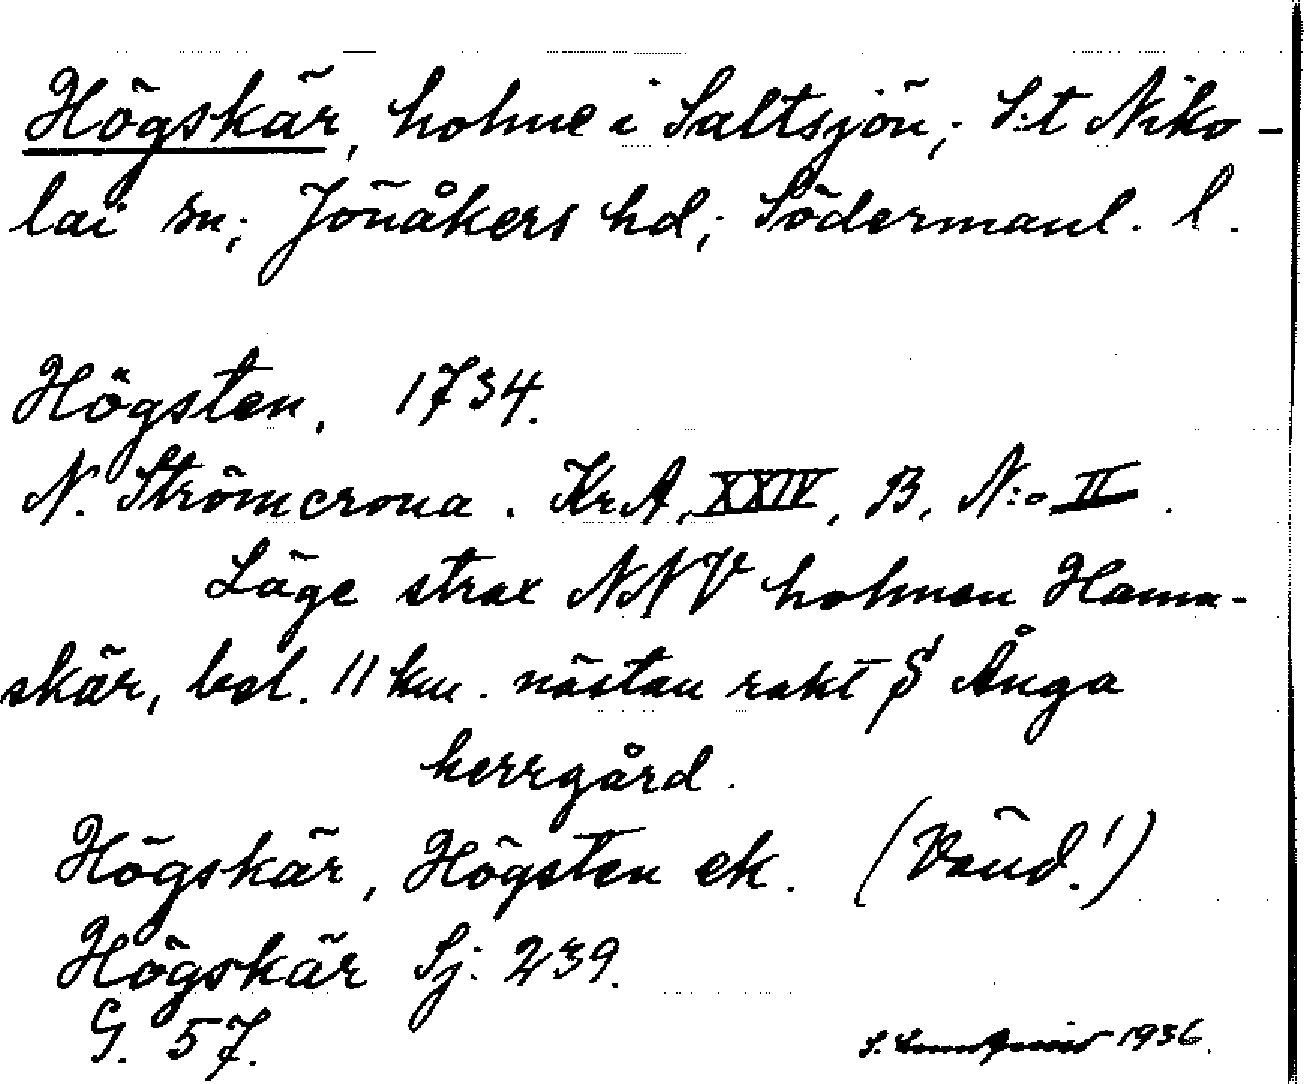 Högskär, holme i Saltsjön; S:t Niko-
lai sn; Jönåkers hd; Södermanl. l.
Högsten, 1734.
N. Strömcrona. Kr.A, XXIV, B, N:o II.
Läge strax NNV holmen Hamn-
skär, bel. 11 km. nästan rakt S Ånga
herrgård.
Högskär, Högsten ek. (Vänd!)
Högskär Sj. 239.
G. 57.
S. 1936.